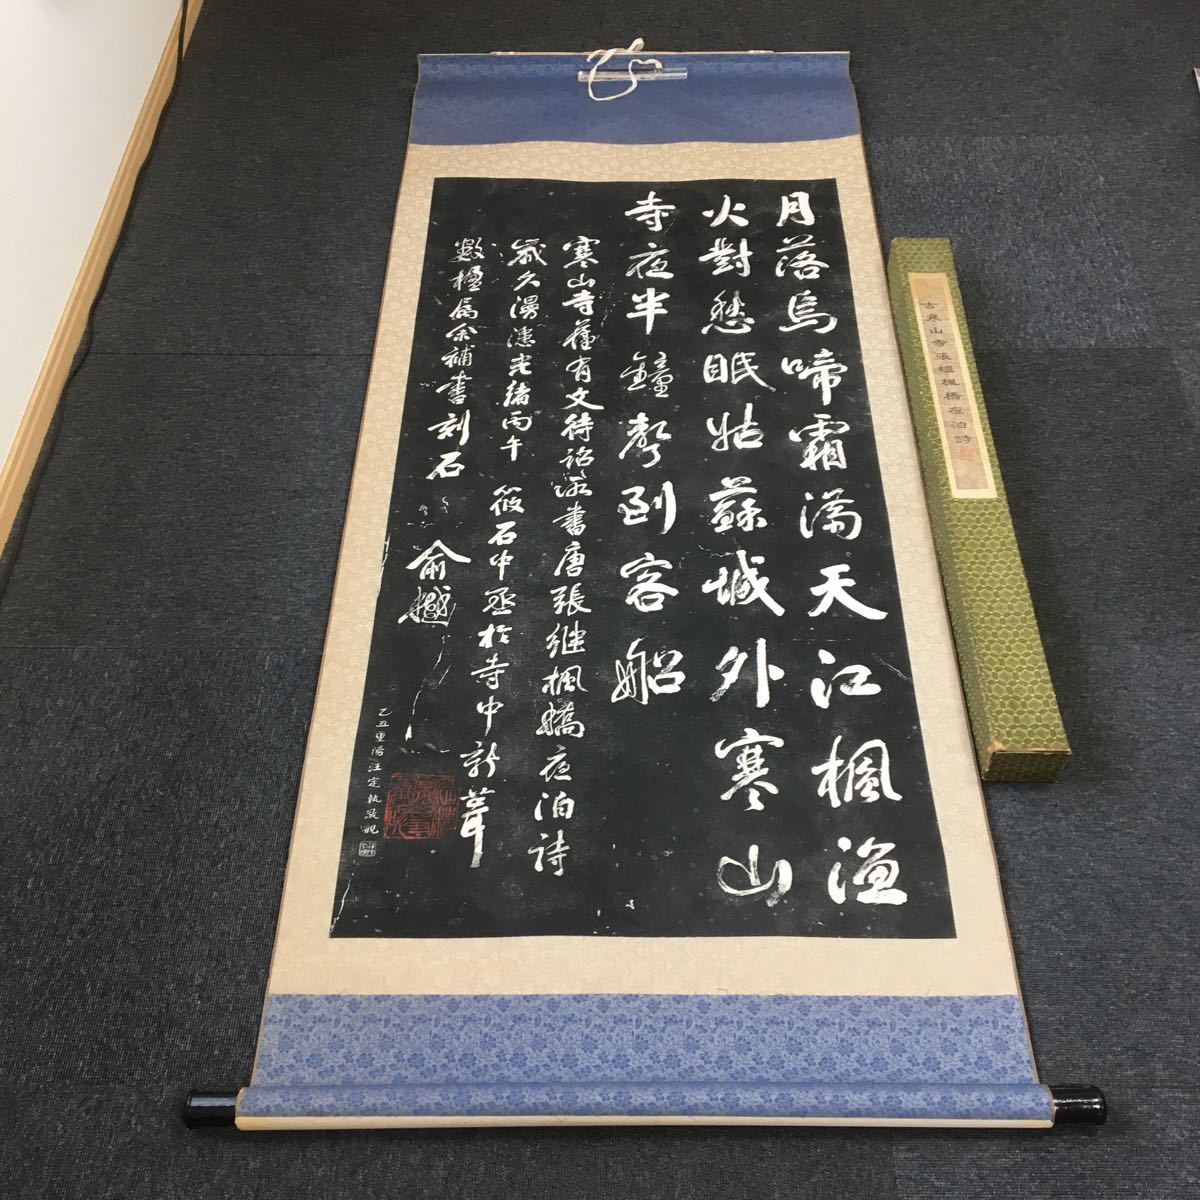 月落烏啼霜满天江楓漁
火對愁眠姑蘇城外寒山
寺夜半鐘聲到客船
寒山寺舊有文待詔所書唐張继楓橋夜泊詩
歲久漫漶光緒丙午 筱石中丞於寺中新葺
數楹屬余補書刻石 俞樾
乙丑重陽汪定執敬觀
古寒山寺張繼楓橋夜泊詩